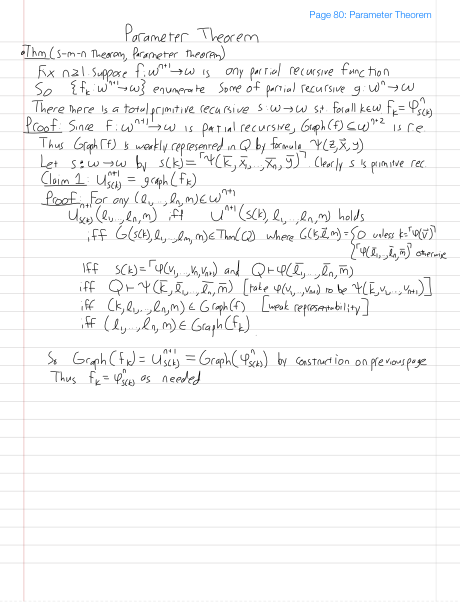 Page 80: Parameter Theorem
Parameter Theorem
•Thm (s-m-n Theorem, Parameter Theorem)
Fix n≥1 Suppose f: ω^{n+1}→ω is any partial recursive function
So {f_k: ω^{n+1}→ω} enumerate some of partial recursive g: ω^n→ω
There there is a total primitive recursive s: ω→ω st forall k∈ω f_k = φ^n_{s(k)}
Proof: Since F: ω^{n+1}→ω is partial recursive, Graph(f) ⊆ ω^{n+2} is r.e
Thus Graph(f) is weakly represented in Q by formula Ψ(z, x̄, y)
Let s: ω→ω by s(k) = ⌜Ψ(k̄, x̄_1, ..., x̄_n, ȳ)⌝ Clearly s is primitive rec.
Claim 1: U^{n+1}_{s(k)} = graph(f_k)
Proof: For any (l_1, ..., l_n, m) ∈ ω^{n+1}
U^{n+1}_{s(k)}(l_1, ..., l_n, m) iff U^{n+1}(s(k), l_1, ..., l_n, m) holds
iff G(s(k), l_1, ..., l_n, m) ∈ Thm(Q) where G(k, l̄, m) = {0 unless k = ⌜φ(v̄)⌝
{⌜φ(l̄_1, ..., l̄_n, m̄)⌝ otherwise
iff s(k) = ⌜φ(v_1, ..., v_n, v_{n+1})⌝ and Q ⊢ φ(l̄_1, ..., l̄_n, m̄)
iff Q ⊢ Ψ(k̄, l̄_1, ..., l̄_n, m̄) [take φ(v_1, ..., v_{n+1}) to be Ψ(k̄, v_1, ..., v_{n+1})]
iff (k, l_1, ..., l_n, m) ∈ Graph(f) [weak representability]
iff (l_1, ..., l_n, m) ∈ Graph(f_k)
So Graph(f_k) = U^{n+1}_{s(k)} = Graph(φ^n_{s(k)}) by construction on previous page
Thus f_k = φ^n_{s(k)} as needed